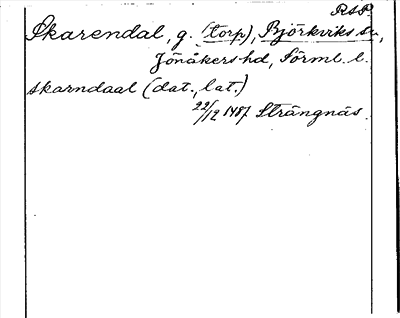 RSP.
Skarendal, g. (torp), Björkviks sn,
Jönåkers hd, Sörml. l.
skarndaal (dat., lat.)
22/12 1487 Strängnäs.